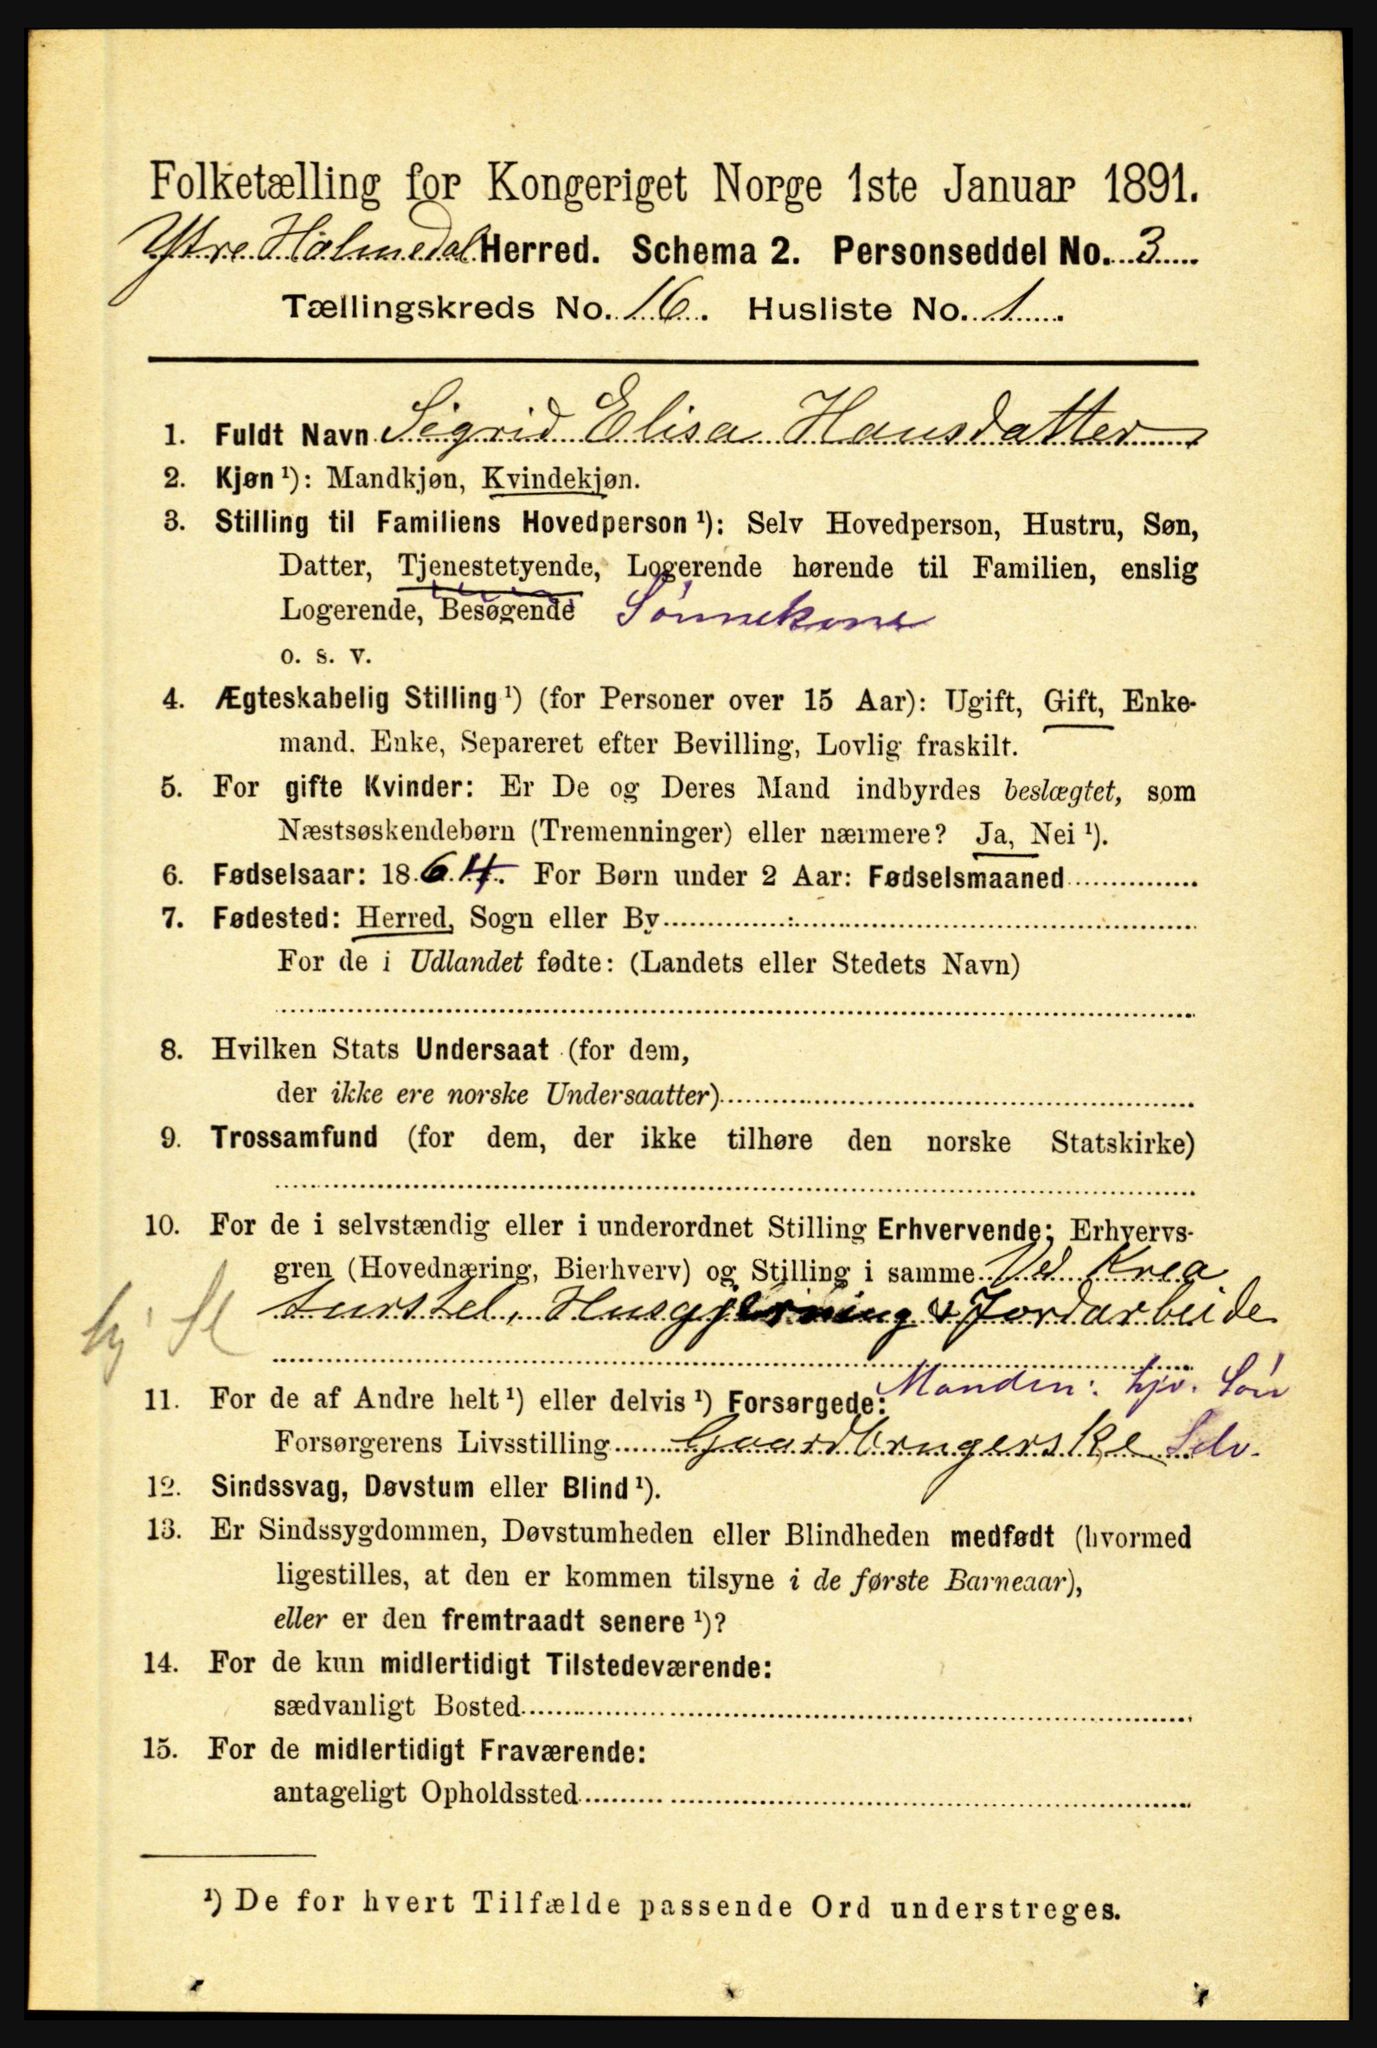 Folketælling for Kongeriget Norge 1ste Januar 1891.
Ytre Holmedal Herred. Schema 2. Personseddel No. 3
Tællingskreds No. 16. Husliste No. 1
1. Fuldt Navn Sigrid Elisa Hansdatter
2. Kjøn ¹): Mandkjøn, Kvindekjøn.
3. Stilling til Familiens Hovedperson ¹): Selv Hovedperson, Hustru, Søn,
Datter, Tjenestetyende, Logerende hørende til Familien, enslig
Logerende, Besøgende Sønnekone
o. s. v.
4. Ægteskabelig Stilling ¹) (for Personer over 15 Aar): Ugift, Gift, Enke-
mand. Enke, Separeret efter Bevilling, Lovlig fraskilt.
5. For gifte Kvinder: Er De og Deres Mand indbyrdes beslægtet, som
Næstsøskendebørn (Tremenninger) eller nærmere? Ja, Nei ¹).
6. Fødselsaar: 1864. For Børn under 2 Aar: Fødselsmaaned
7. Fødested: Herred, Sogn eller By
For de i Udlandet fødte: (Landets eller Stedets Navn)
8. Hvilken Stats Undersaat (for dem,
der ikke ere norske Undersaatter)
9. Trossamfund (for dem, der ikke tilhøre den norske Statskirke)
10. For de i selvstændig eller i underordnet Stilling Erhvervende: Erhvervs-
gren (Hovednæring, Bierhverv) og Stilling i samme Ved Krea
turstel, Husgjerning & Jordarbeide
11. For de af Andre helt ¹) eller delvis ¹) Forsørgede: Manden: hjv. Søn
Forsørgerens Livsstilling Gaardbrugerske Selv.
12. Sindssvag, Døvstum eller Blind ¹).
13. Er Sindssygdommen, Døvstumheden eller Blindheden medfødt (hvormed
ligestilles, at den er kommen tilsyne i de første Barneaar),
eller er den fremtraadt senere ¹)?
14. For de kun midlertidigt Tilstedeværende:
sædvanligt Bosted
15. For de midlertidigt Fraværende:
antageligt Opholdssted
¹) De for hvert Tilfælde passende Ord understreges.